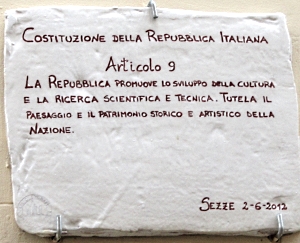 Costituzione della Repubblica Italiana
Articolo 9
La Repubblica promuove lo sviluppo della cultura
e la ricerca scientifica e tecnica. Tutela il
paesaggio e il patrimonio storico e artistico della
Nazione.
Sezze 2-6-2012